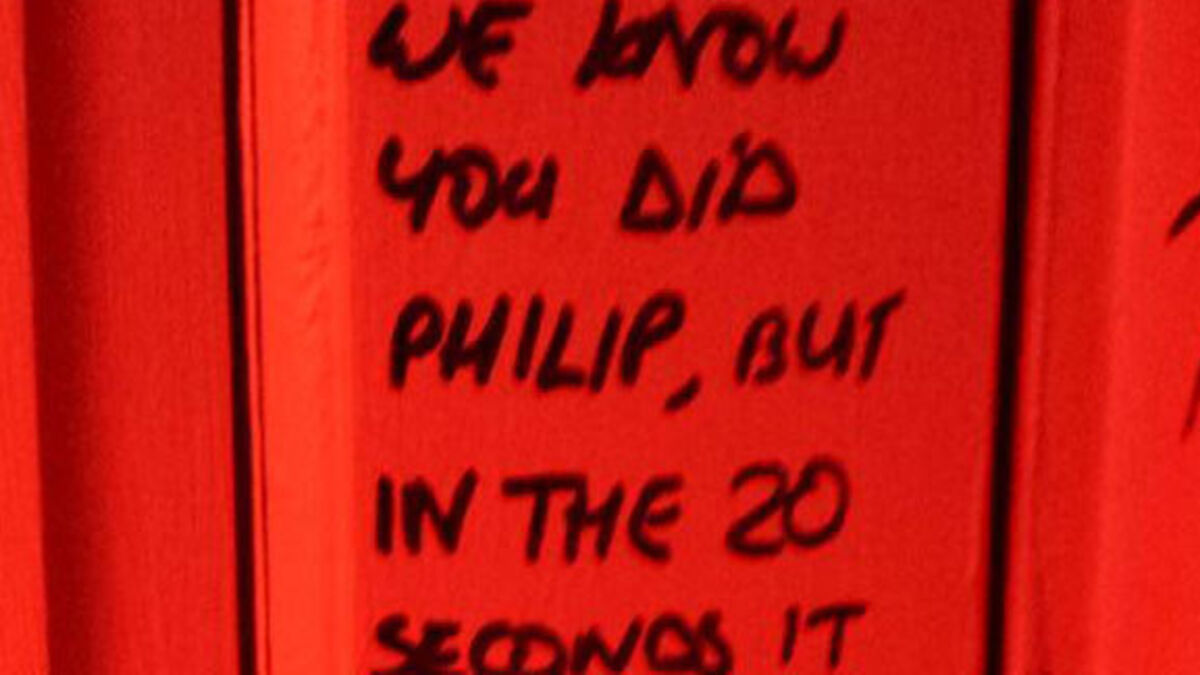 WE KNOW
YOU DID
PHILIP, BUT
IN THE 20
SECONDS IT